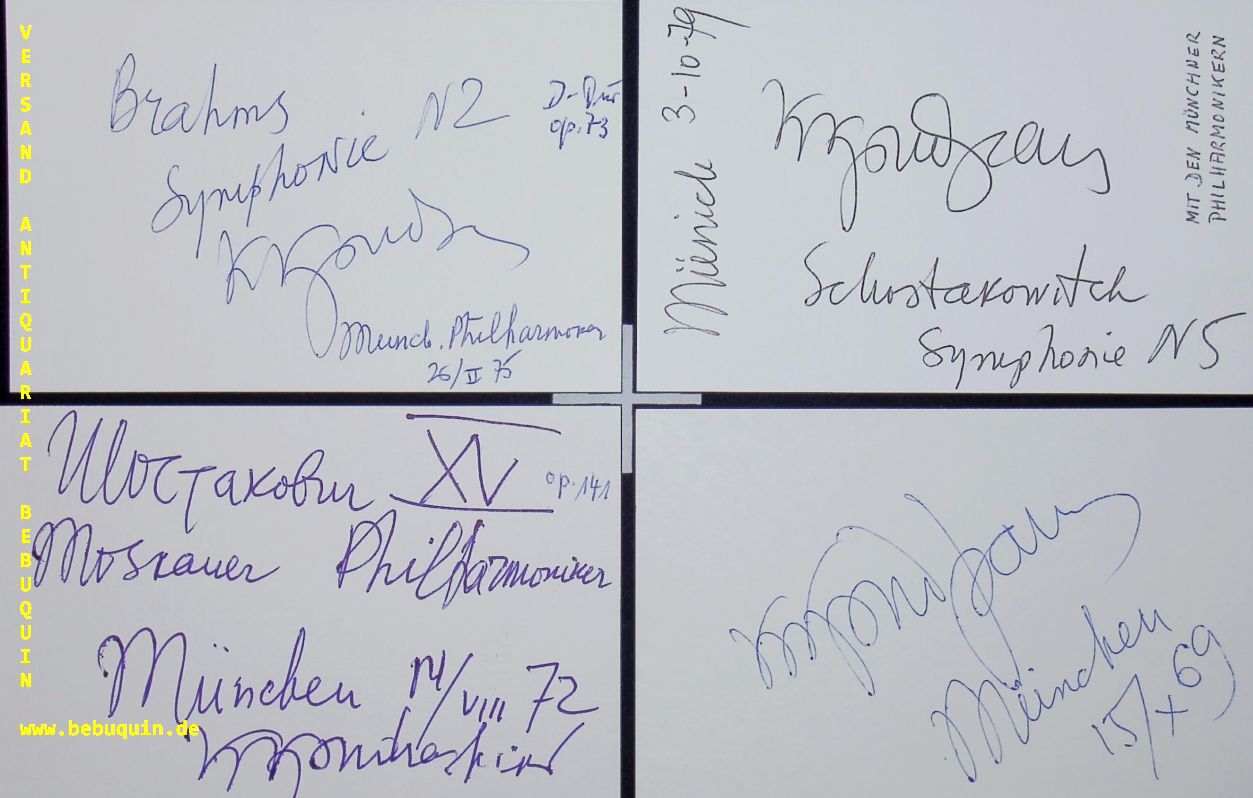 VERSAND ANTIQUARIAT BEBUQUIN
www.bebuquin.de
Brahms
Symphonie N2
D-Dur
op. 73
Münch. Philharmoniker
26/II 75
Münich 3-10-79
Schostakowitch
Symphonie N5
MIT DEN MÜNCHNER
PHILHARMONIKERN
Шостакович XV op. 141
Moskauer Philharmoniker
München 14/VIII 72
K Kondraschin
München
15/X 69